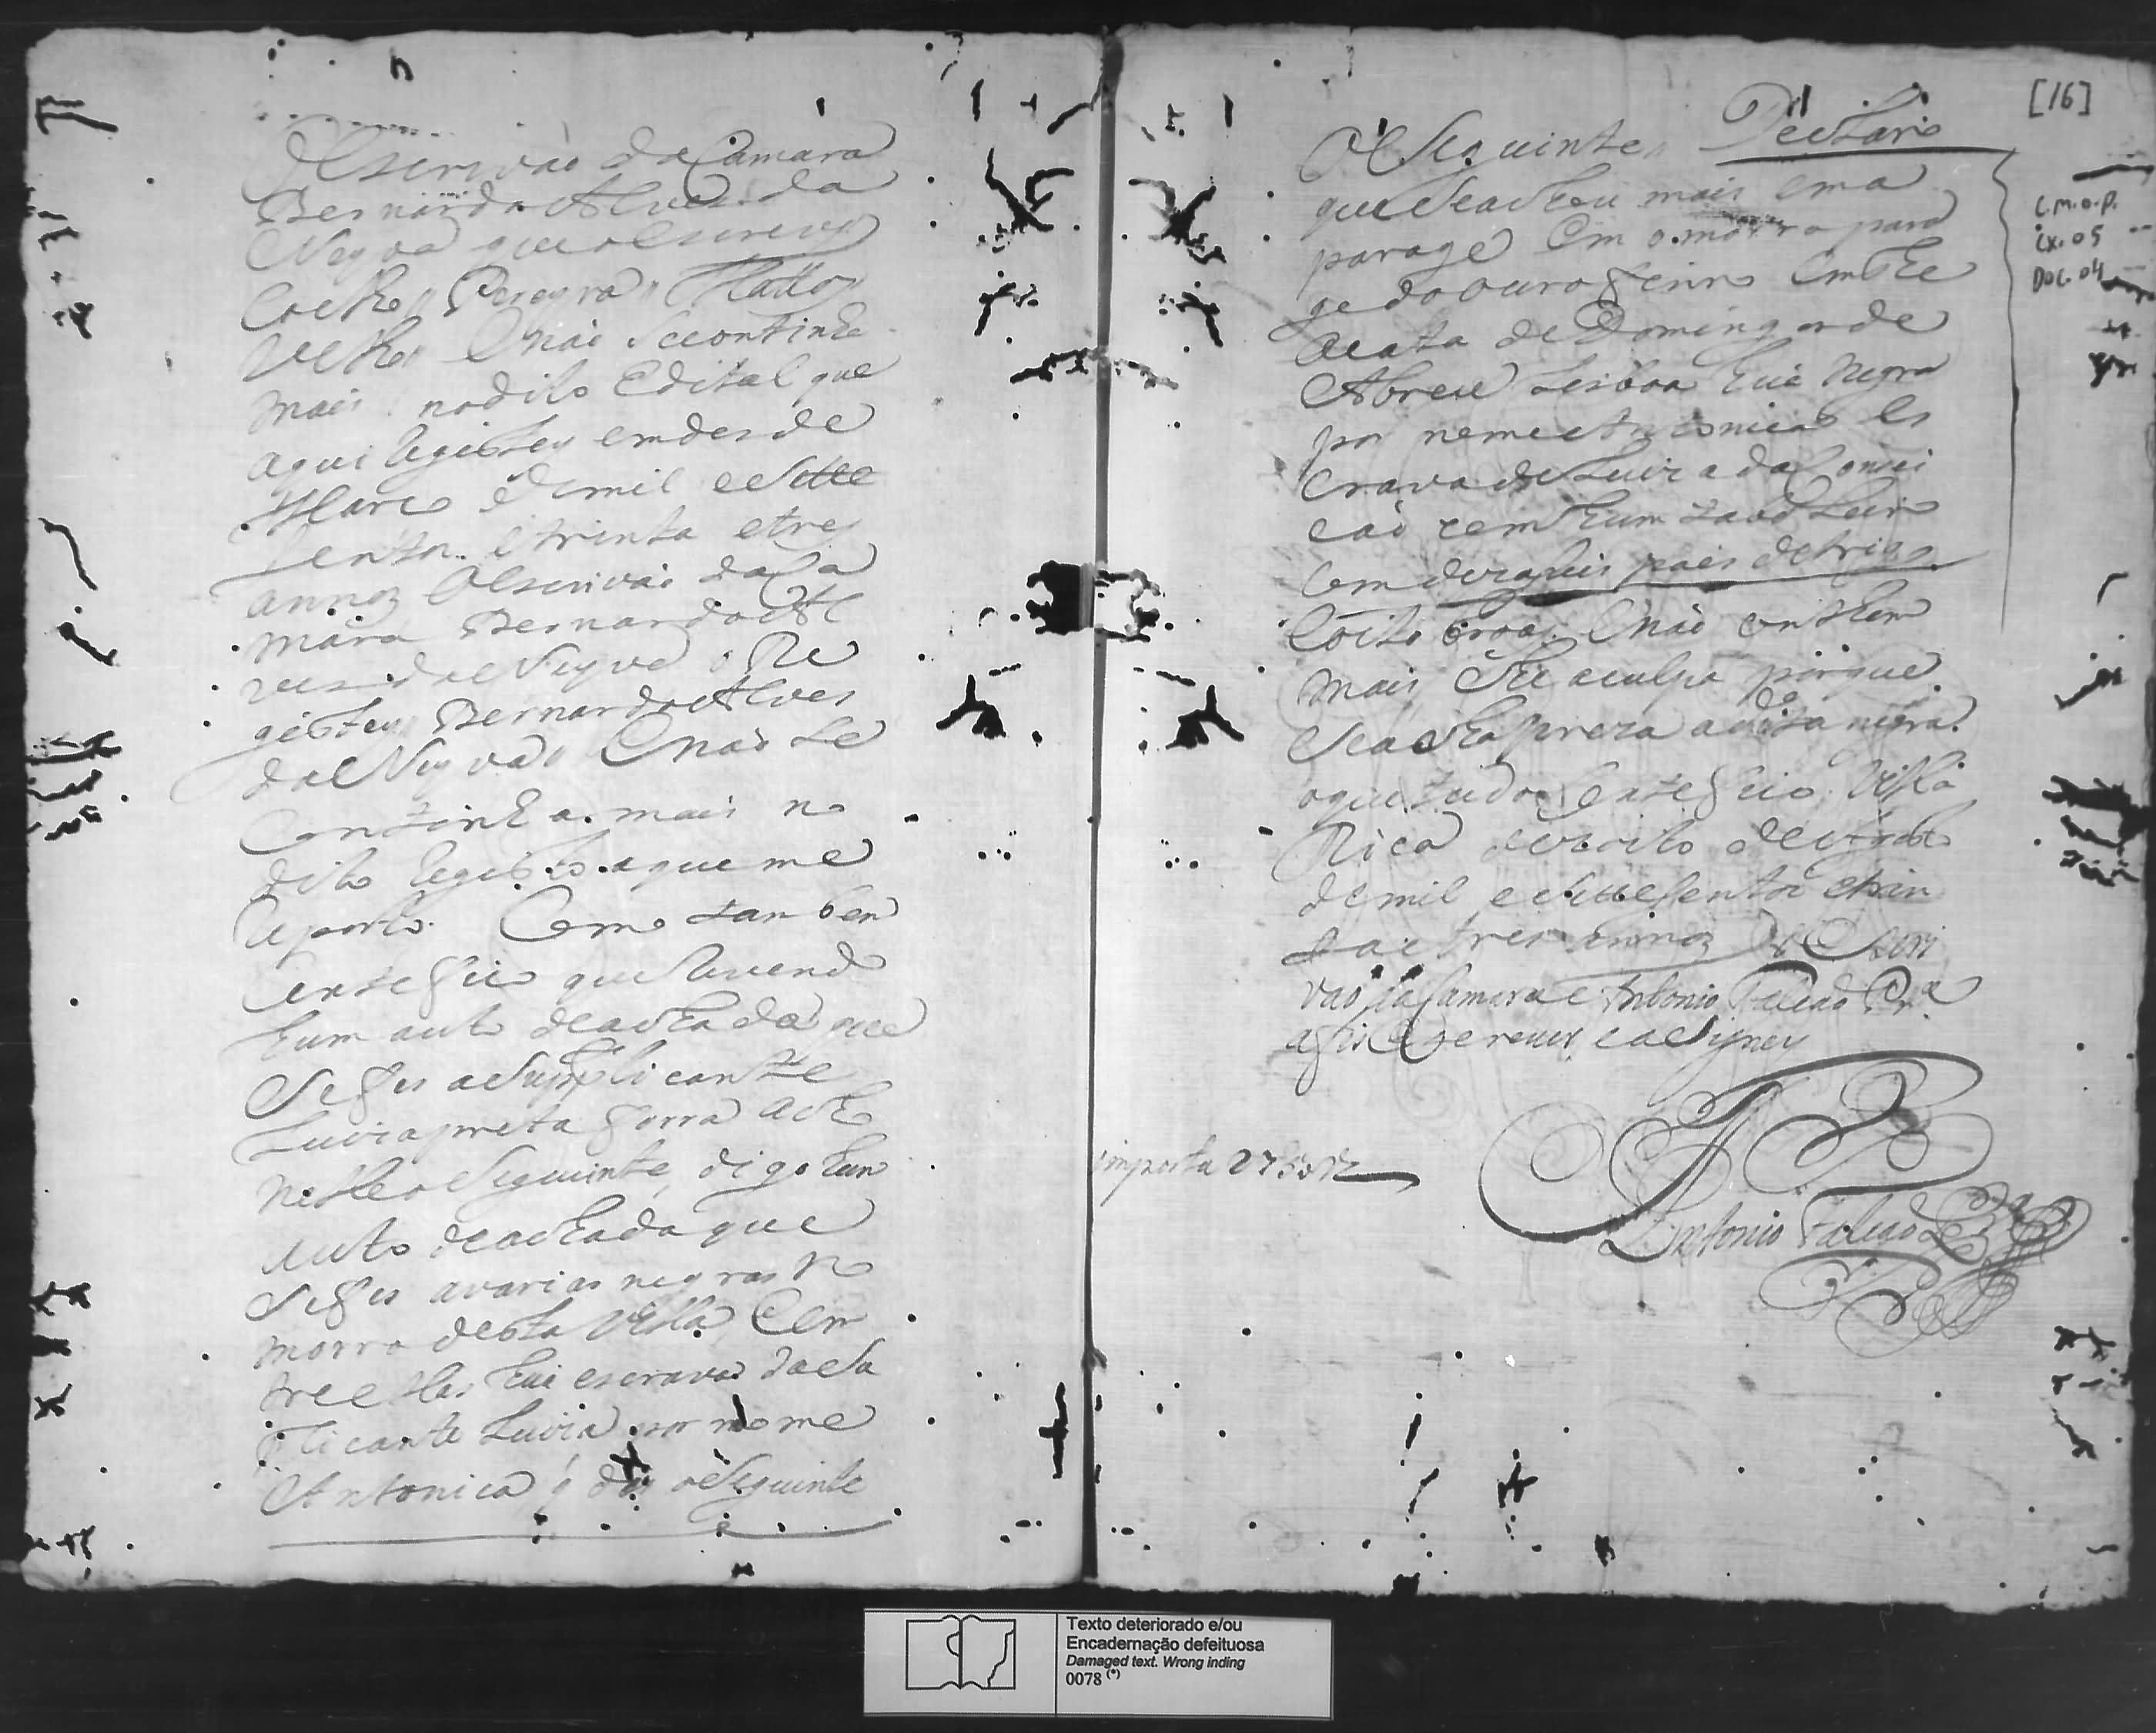 O Escrivão da Camara
Bernardo Alves da
Neyva que o Escrevy
Coelho Pereyra Mattos
Velho E não Se continha
mais no dito Edital que
aqui Registey em des de
Março de mil e Sette
Sentos e trinta e tres
annos O Escrivão da Ca
mara Bernardo Al
ves da Neyva o Re
gistey Bernardo Alves
da Neyva E não Se
Continha mais no
dito Registo a que me
Reporto. Como tanbem
Certefico que Revendo
hum auto de achada que
Se fes a Supplicante
Luvia preta forra ach
nelle o Seguinte, digo hum
auto de achada que
Se fes a varias negras no
morro desta Villa E en
tre ellas hua escrava da Su
plicante Luvia por nome
Antonica q diz o Seguinte
[16]
O Seguinte Declaro
que Se achou mais em a
parage em o morro para
ge do ouro fino emthe
a cata de Domingos de
Abreu Lisboa hua negra
por nome Antonica es
crava de Luvia da Consei
cão com hum taboleiro
Com des paes de trigo
E oito broas E não continha
mais
Se acha preza a dita negra
o que tudo Certefico Villa
Rica de oito de Abril
de mil e Settesentos e trin
ta e tres annos O Escri
vão da Camara Antonio Falcão Pra
a fis Escrever e aSigney
importa
Antonio Falcão Pra
C.M.O.P.
CX. 05
DOC. 04
Texto deteriorado e/ou
Encadernação defeituosa
Damaged text. Wrong inding
0078 (*)